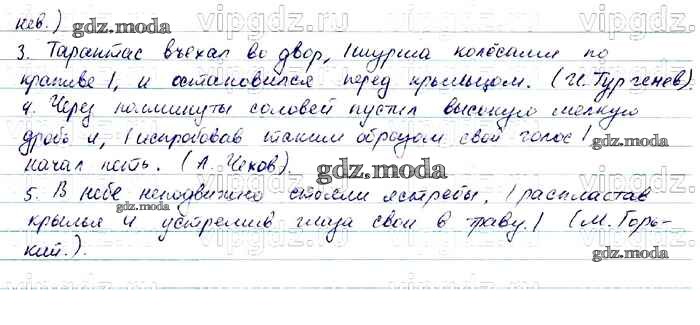 нев.)
3. Тарантас въехал во двор, |шурша колёсами по
крапиве|, и остановился перед крыльцом. (И. Тургенев)
4. Через полминуты соловей пустил высокую мелкую
дробь и, |испробовав таким образом свой голос|
начал петь. (А. Чехов).
5. В небе неподвижно стояли ястребы, |распластав
крылья и устремив глаза свои в траву.| (М. Горь-
кий.).
gdz.moda
gdz.moda
gdz.moda
gdz.moda
gdz.moda
gdz.moda
gdz.moda
vipgdz.ru
vipgdz.ru
vipgdz.ru